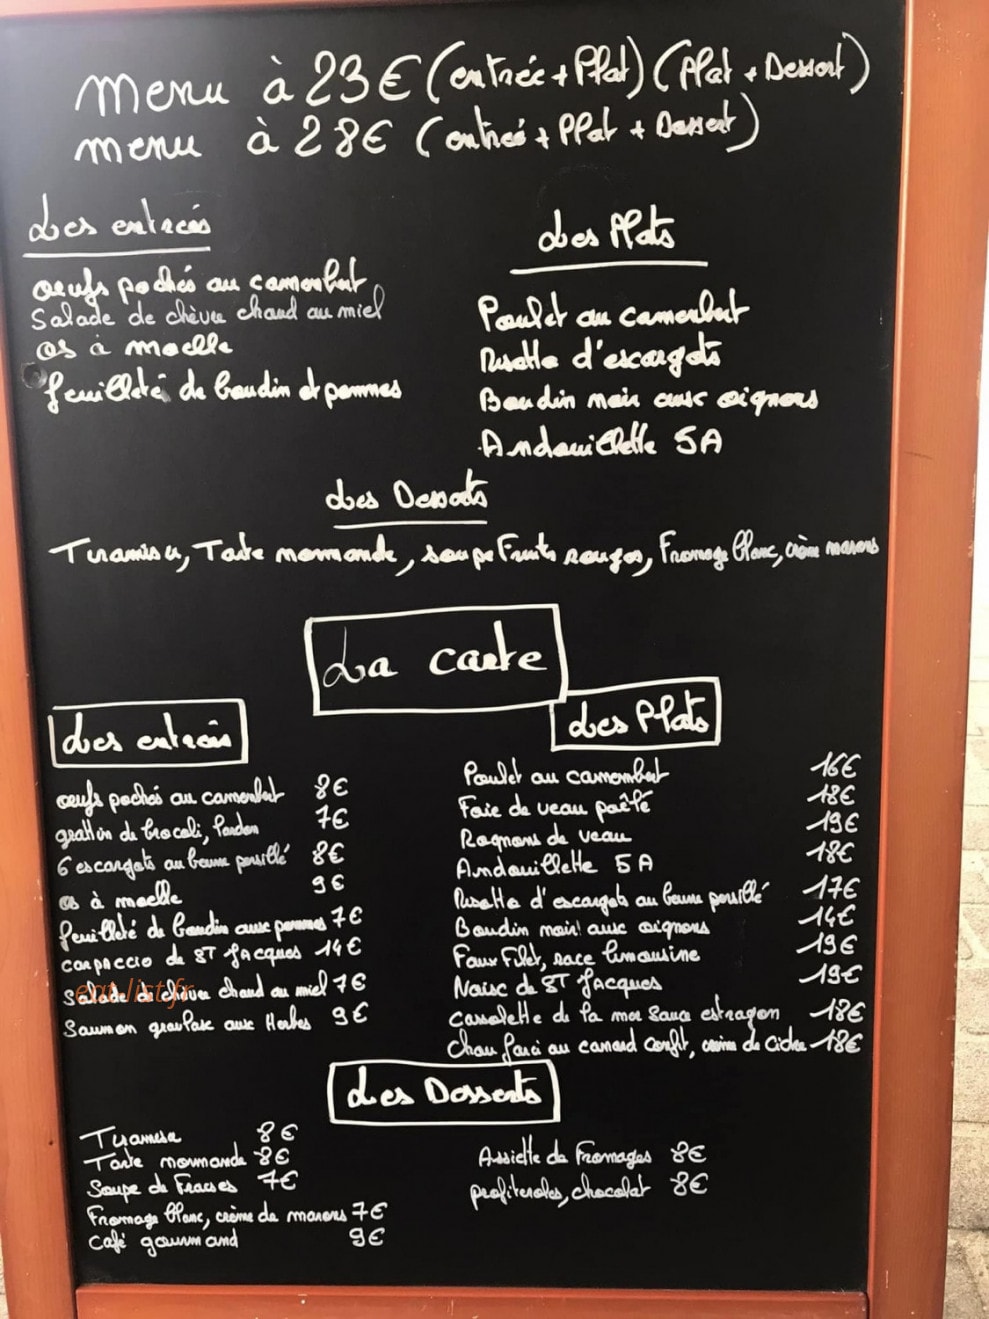 Menu à 23€ (entrée + Plat) (Plat + Dessert)
menu à 28€ (entrée + Plat + Dessert)
Les entrées
œufs pochés au camembert
Salade de chèvre chaud au miel
os à moelle
feuilleté de boudin et pommes
Les Plats
Poulet au camembert
Risotto d'escargots
Boudin noir aux oignons
Andouillette 5A
Les Desserts
Tiramisu, Tarte normande, soupe Fruits rouges, Fromage blanc, crème marrons
La carte
Les entrées
œufs pochés au camembert 8€
gratin de brocoli, lardon 7€
6 escargots au beurre persillé 8€
os à moelle 9€
feuilleté de boudin aux pommes 7€
carpaccio de ST Jacques 14€
Salade de chèvre chaud au miel 7€
Saumon gravlax aux Herbes 9€
Les Plats
Poulet au camembert 16€
Foie de veau poêlé 18€
Rognons de veau 19€
Andouillette 5A 18€
Risotto d'escargots au beurre persillé 17€
Boudin noir aux oignons 14€
Faux Filet, race limousine 19€
Noix de ST Jacques 19€
Cassolette de la mer sauce estragon 18€
Chou farci au canard confit, crème de Cidre 18€
Les Desserts
Tiramisu 8€
Tarte normande 8€
Soupe de Fraises 7€
Fromage blanc, crème de marrons 7€
Café gourmand 9€
Assiette de Fromages 8€
profiteroles, chocolat 8€
eat.list.fr